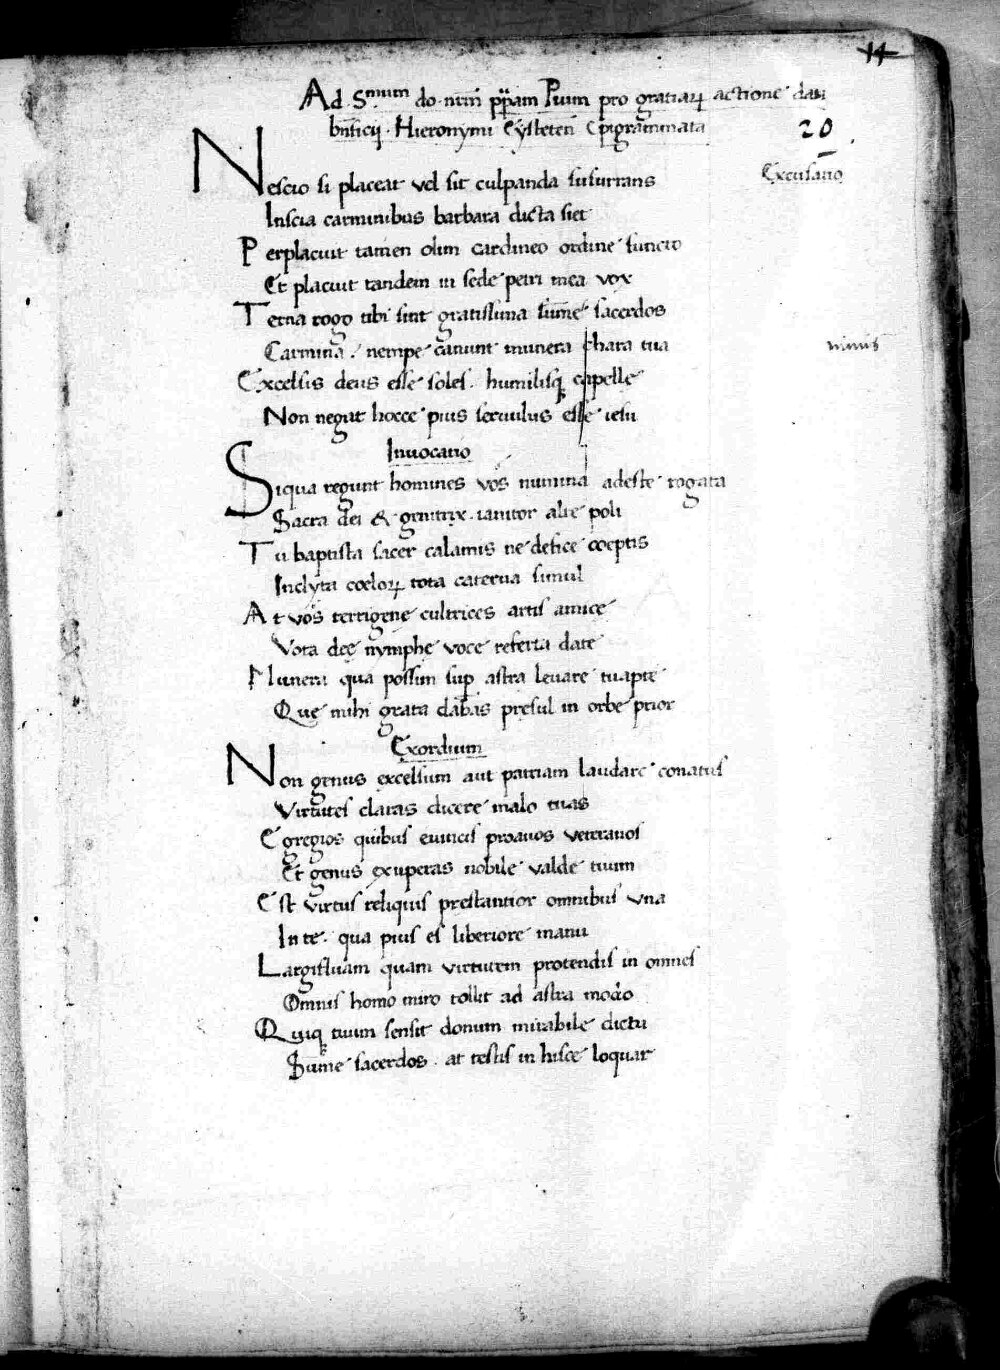 14
Ad S.mum do. nrm̄ pp̄am Pium pro gratiaꝝ actione dati
bn̄ficij. Hieronymi Eysteteñ Epigrammata
20
Excusatio
Nescio si placeat vel sit culpanda susurrans
Inscia carminibus barbara dicta siet
Perplacuit tamen olim cardineo ordine functo
Et placuit tandem in sede petri mea vox
Terna rogo tibi sint gratissima sum̄e sacerdos
Carmina. nempe canunt munera chara tua
nimis
Excelsis deus esse soles. humilisq̨ capelle
Non negat hocce pius seruulus esse iesu
Inuocatio
Siqua regunt homines vos numina adeste rogata
Sacra dei & genitrix. ianitor alte poli
Tu baptista sacer calamis ne defice coeptis
Inclyta coeloꝝ tota caterua simul
At vos terrigenę cultrices artis amicę
Vota deę nymphę voce referta date
Munera qua possim sup̱ astra leuare tuapte
Que mihi grata dabas presul in orbe prior
Exordium
Non genus excelsum aut patriam laudare conatus
Virtutes claras dicere malo tuas
Egregios quibus euincis proauos veteranos
Et genus exuperas nobile valde tuum
Est virtus reliquis prestantior omnibus vna
In te. qua pius es liberiore manu
Largifluam quam virtutem protendis in omnes
Omnis homo miro tollit ad astra modo
Quiq̨ tuum sensit donum mirabile dictu
Sum̄e sacerdos. at testis in hisce loquar